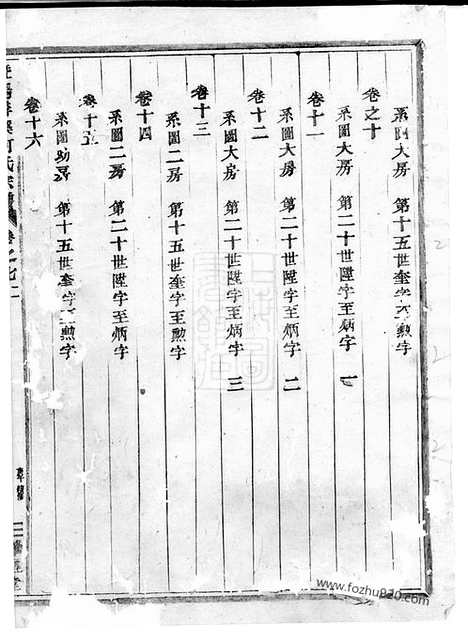 系圖大房　第十五世奎字至勲字
卷之十
系圖大房　第二十世陞字至炳字　一
卷十一
系圖大房　第二十世陞字至炳字　二
卷十二
系圖大房　第二十世陞字至炳字　三
卷十三
系圖二房　第十五世奎字至勲字
卷十四
系圖二房　第二十世陞字至炳字
卷十五
系圖助房　第十五世奎字至勲字
卷十六
氏宗譜　卷之七
www.fozhu920.com